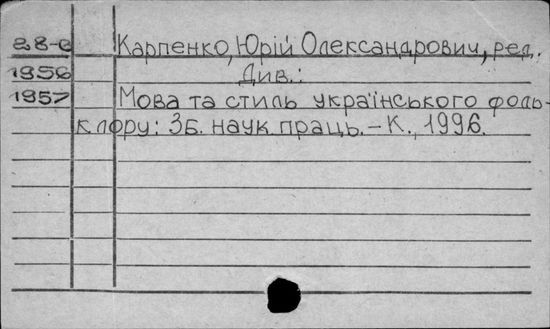 28-е Карпенко, Юрій Олександрович, ред.
1956 Див.:
1957 Мова та стиль українського фоль-
клору: Зб. наук праць. – К., 1996.